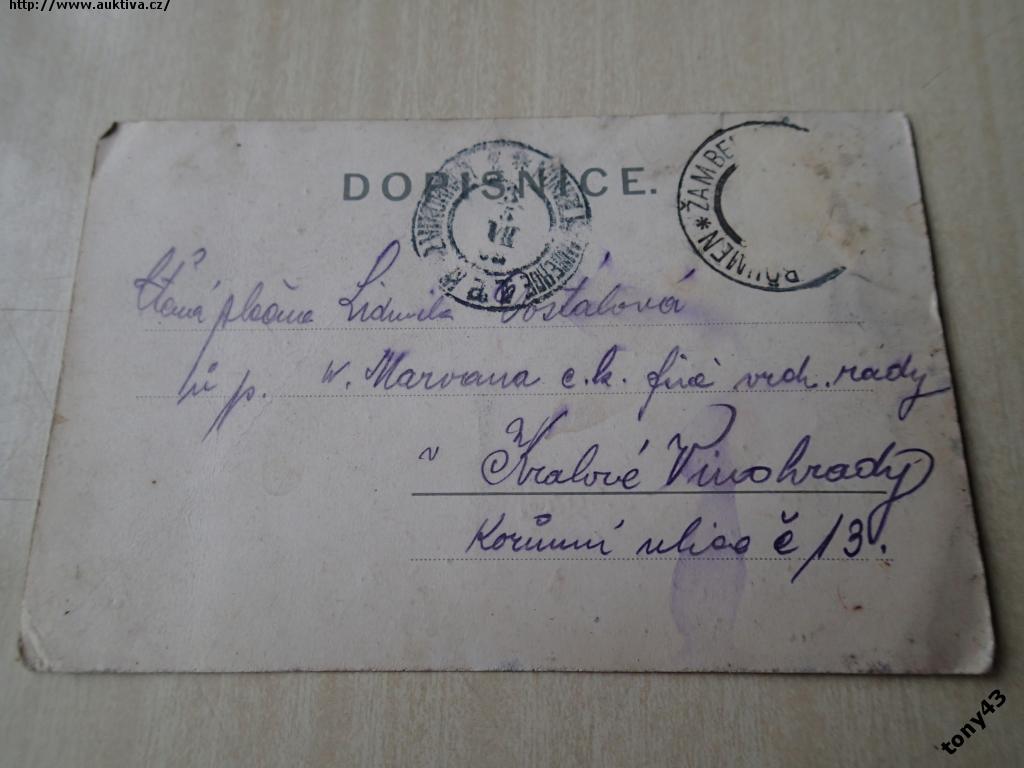 http://www.auktiva.cz/
DOPISNICE.
ŽAMBE
BÖHMEN
Ctěná slečna Lidmila Dostálová
u p. W. Marvana c.k. fin. vrch. rady
v Králové Vinohrady
Korunní ulice č 13.
tony43